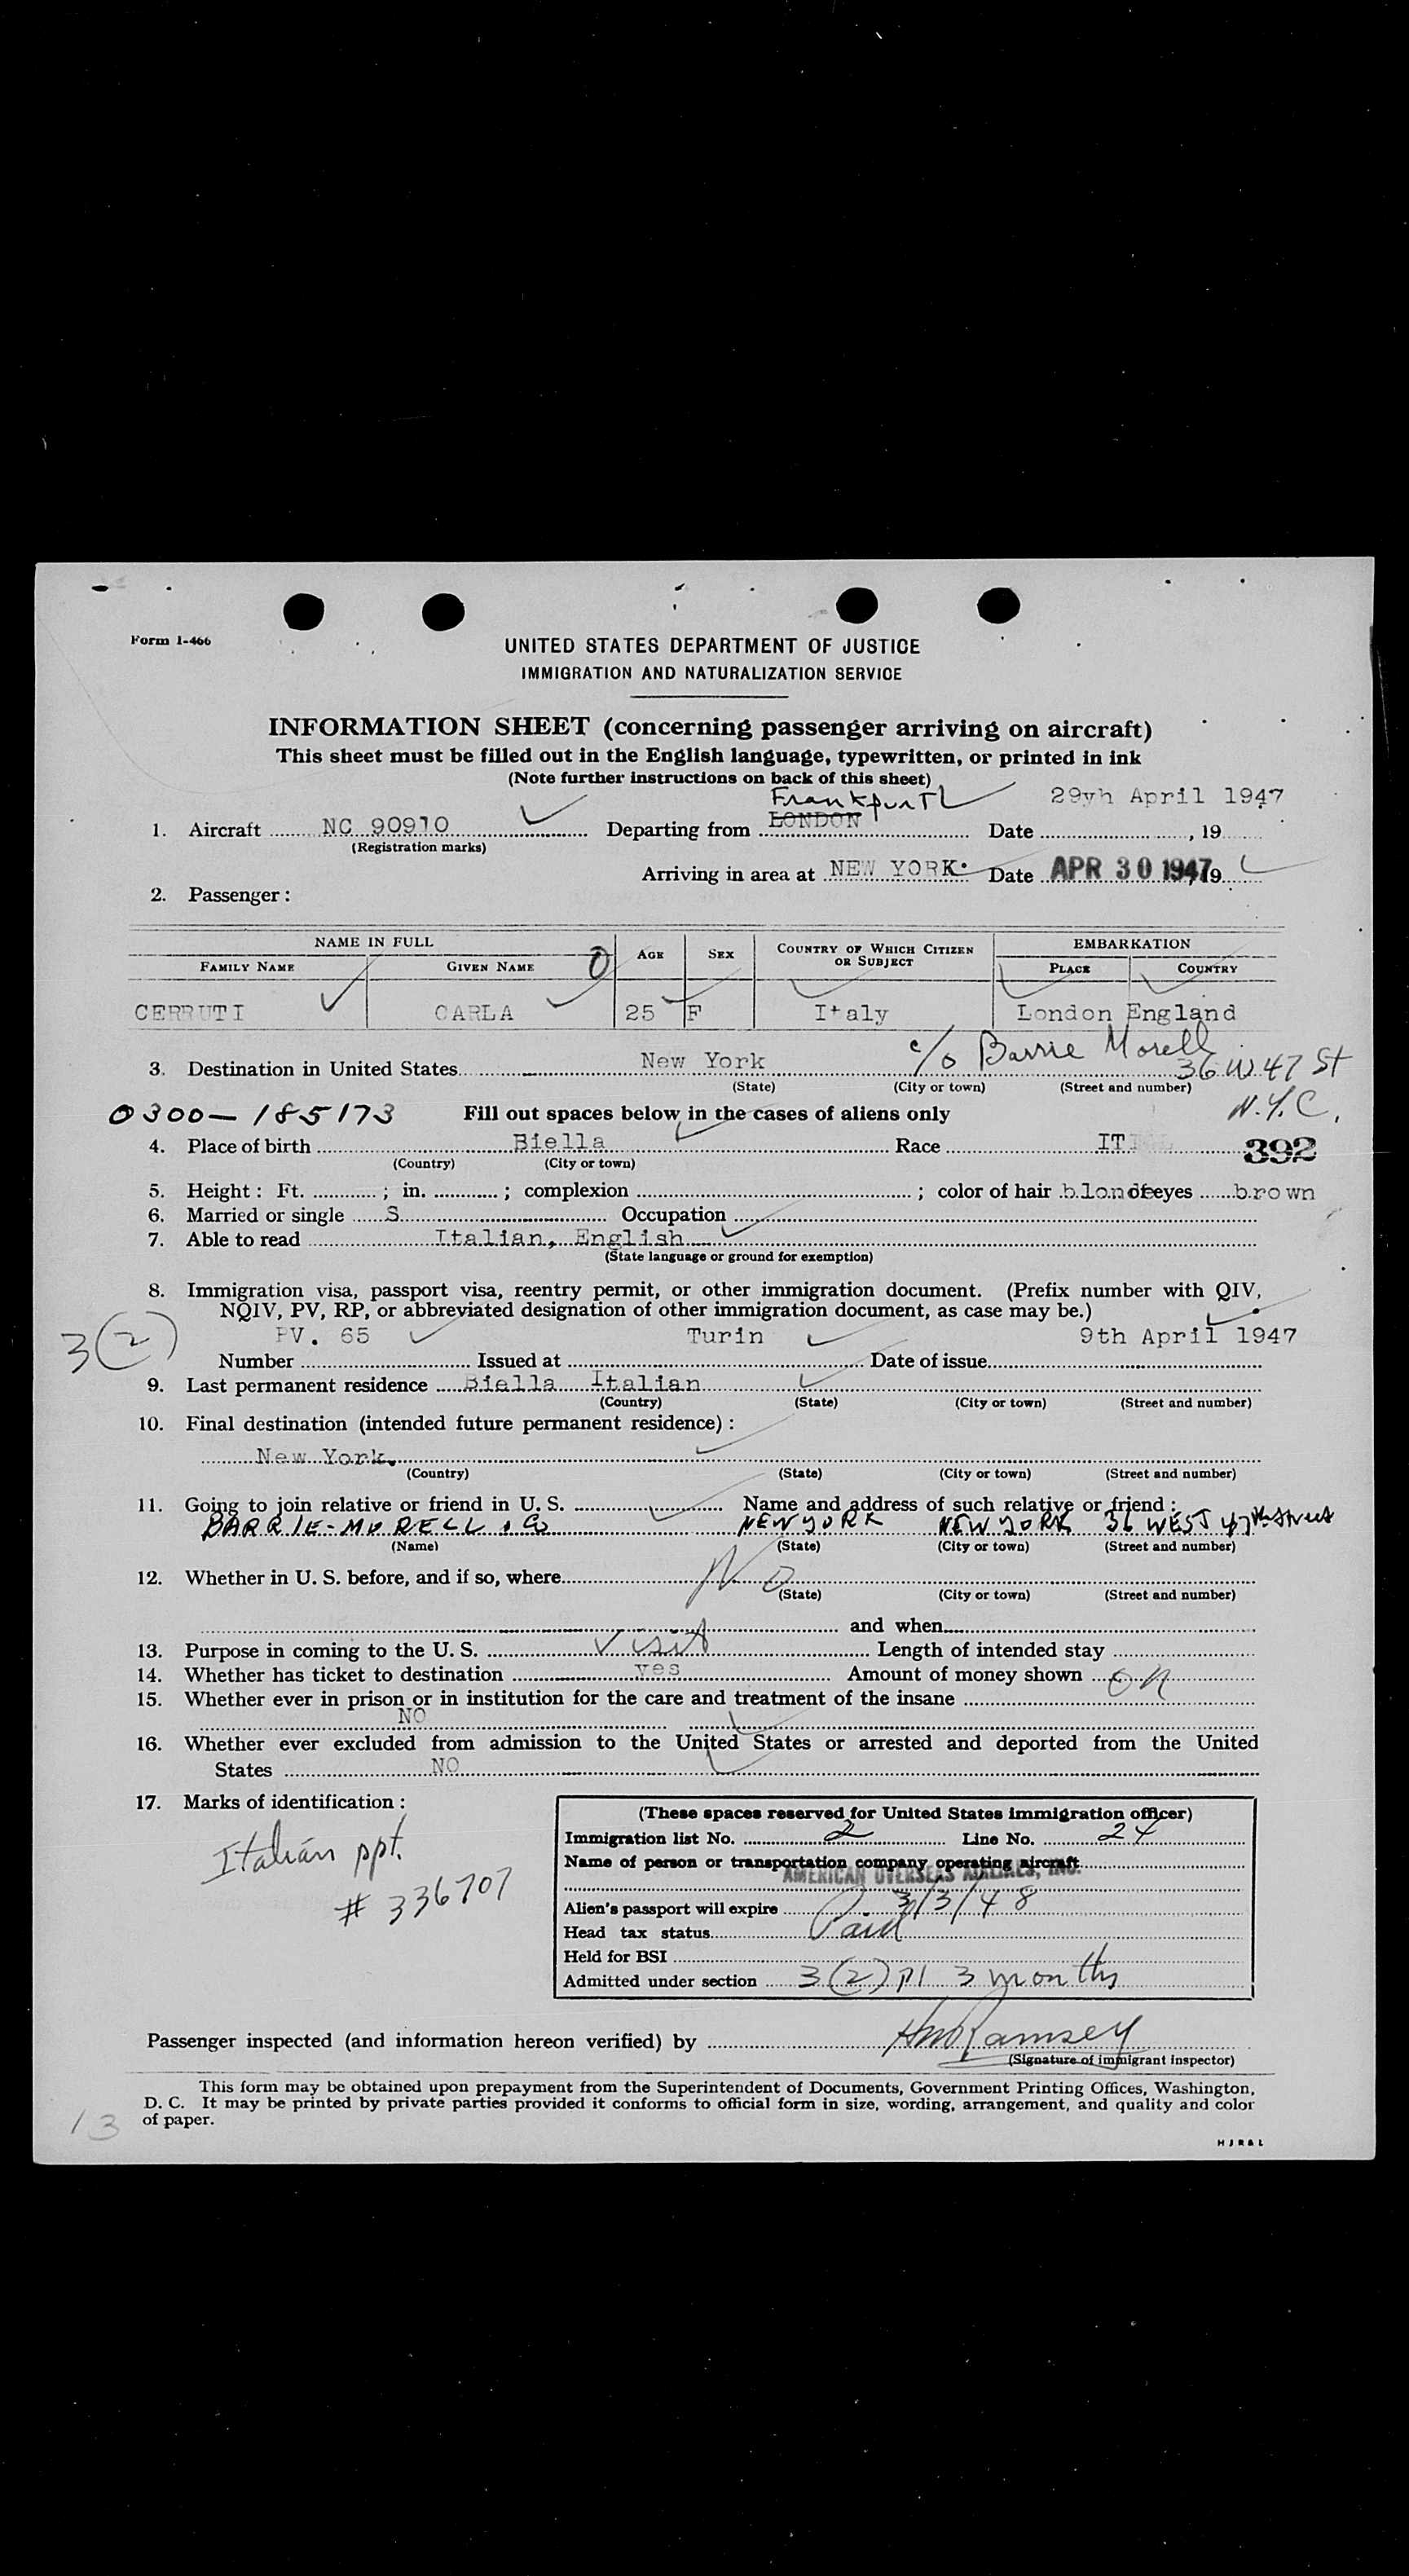 Form I-466
UNITED STATES DEPARTMENT OF JUSTICE
IMMIGRATION AND NATURALIZATION SERVICE
INFORMATION SHEET (concerning passenger arriving on aircraft)
This sheet must be filled out in the English language, typewritten, or printed in ink
(Note further instructions on back of this sheet)
Frankfurt 29yh April 1947
1. Aircraft NC 90910 Departing from LONDON Date , 19
(Registration marks)
Arriving in area at NEW YORK. Date APR 30 1947 19
2. Passenger:
NAME IN FULL AGE SEX COUNTRY OF WHICH CITIZEN OR SUBJECT EMBARKATION
FAMILY NAME GIVEN NAME PLACE COUNTRY
CERRUTI CARLA 25 F Italy London England
c/o Barrie Morell
3. Destination in United States New York 36 W 47 St
(State) (City or town) (Street and number)
N.Y.C.
0300-185173 Fill out spaces below in the cases of aliens only
4. Place of birth Biella Race IT 392
(Country) (City or town)
5. Height: Ft. ; in. ; complexion ; color of hair blonde eyes brown
6. Married or single S Occupation
7. Able to read Italian, English
(State language or ground for exemption)
8. Immigration visa, passport visa, reentry permit, or other immigration document. (Prefix number with QIV,
NQIV, PV, RP, or abbreviated designation of other immigration document, as case may be.)
3(2) PV. 65 Turin 9th April 1947
Number Issued at Date of issue
9. Last permanent residence Biella Italian
(Country) (State) (City or town) (Street and number)
10. Final destination (intended future permanent residence):
New York.
(Country) (State) (City or town) (Street and number)
11. Going to join relative or friend in U. S. Name and address of such relative or friend:
BARRIE-MORELL & Co NEW YORK NEW YORK 36 WEST 47th Street
(Name) (State) (City or town) (Street and number)
12. Whether in U. S. before, and if so, where No
(State) (City or town) (Street and number)
and when
13. Purpose in coming to the U. S. Visit Length of intended stay
14. Whether has ticket to destination yes Amount of money shown
15. Whether ever in prison or in institution for the care and treatment of the insane
NO
16. Whether ever excluded from admission to the United States or arrested and deported from the United
States NO
17. Marks of identification:
Italian ppt.
# 336707
(These spaces reserved for United States immigration officer)
Immigration list No. 2 Line No. 24
Name of person or transportation company operating aircraft
AMERICAN OVERSEAS AIRLINES, INC.
Alien's passport will expire 3/3/48
Head tax status Paid
Held for BSI
Admitted under section 3(2) P1 3 months
Passenger inspected (and information hereon verified) by Ramsey
(Signature of immigrant inspector)
This form may be obtained upon prepayment from the Superintendent of Documents, Government Printing Offices, Washington,
D. C. It may be printed by private parties provided it conforms to official form in size, wording, arrangement, and quality and color
of paper.
13
H J R & L